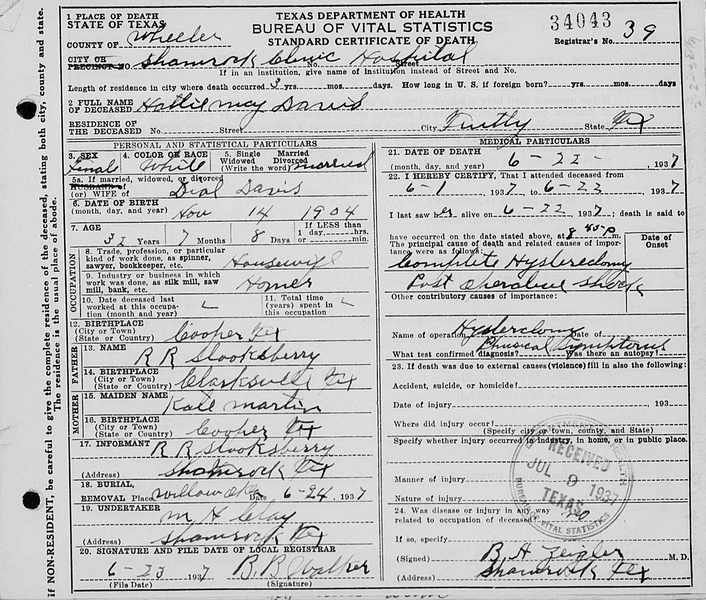 1 PLACE OF DEATH
STATE OF TEXAS
COUNTY OF Wheeler
CITY OR
PRECINCT NO Shamrock Clinic Hospital
TEXAS DEPARTMENT OF HEALTH
BUREAU OF VITAL STATISTICS
STANDARD CERTIFICATE OF DEATH
34043
Registrar's No. 39
Street
If in an institution, give name of institution instead of Street and No.
Length of residence in city where death occurred 3 yrs. mos. days. How long in U. S. if foreign born? yrs. mos. days
2 FULL NAME
OF DECEASED Hattie may Davis
RESIDENCE OF
THE DECEASED No. Street City State Tex
PERSONAL AND STATISTICAL PARTICULARS
3. SEX 4. COLOR OR RACE 5. Single Married
Widowed Divorced
(Write the word) married
White
5a. If married, widowed, or divorced
HUSBAND of
(or) WIFE of Dial Davis
6. DATE OF BIRTH
(month, day, and year) Nov 14 1904
7. AGE If LESS than
1 day, hrs.
or min.
32 Years 7 Months 8 Days
OCCUPATION
8. Trade, profession, or particular
kind of work done, as spinner,
sawyer, bookkeeper, etc. Housewife
9. Industry or business in which
work was done, as silk mill, saw
mill, bank, etc. Homer
10. Date deceased last
worked at this occupa-
tion (month and year)
11. Total time
(years) spent in
this occupation
12. BIRTHPLACE
(City or Town)
(State or Country) Cooper Tex
FATHER
13. NAME
R R Stooksberry
14. BIRTHPLACE
(City or Town)
(State or Country) Clarksville Tex
MOTHER
15. MAIDEN NAME
Kate Martin
16. BIRTHPLACE
(City or Town)
(State or Country) Cooper Tex
17. INFORMANT R R Stooksberry
(Address) Shamrock Tex
18. BURIAL,
REMOVAL Place Date 6-24 1937
19. UNDERTAKER
M H Clay
(Address) Shamrock Tex
20. SIGNATURE AND FILE DATE OF LOCAL REGISTRAR
6-23 1937 B. B. Walker
(File Date) (Signature)
MEDICAL PARTICULARS
21. DATE OF DEATH
(month, day, and year) 6-22- , 1937
22. I HEREBY CERTIFY, That I attended deceased from
6-1 1937 to 6-22 1937
I last saw her alive on 6-22 1937; death is said to
have occurred on the date stated above, at 8 45 P m.
The principal cause of death and related causes of impor-
tance were as follows:
Date of
Onset
Complete Hysterectomy
Post Operative Shock
Other contributory causes of importance:
Name of operation Hysterectomy Date of
What test confirmed diagnosis? Physical Symptoms Was there an autopsy?
23. If death was due to external causes (violence) fill in also the following:
Accident, suicide, or homicide?
Date of injury , 193
Where did injury occur?
(Specify city or town, county, and State)
Specify whether injury occurred in industry, in home, or in public place.
Manner of injury
Nature of injury
24. Was disease or injury in any way
related to occupation of deceased? no
If so, specify
(Signed) B. H. Zeigler M. D.
(Address) Shamrock Tex
RECEIVED
JUL 9 1937
TEXAS
BUREAU OF VITAL STATISTICS
if NON-RESIDENT, be careful to give the complete residence of the deceased, stating both city, county and state.
The residence is the usual place of abode.